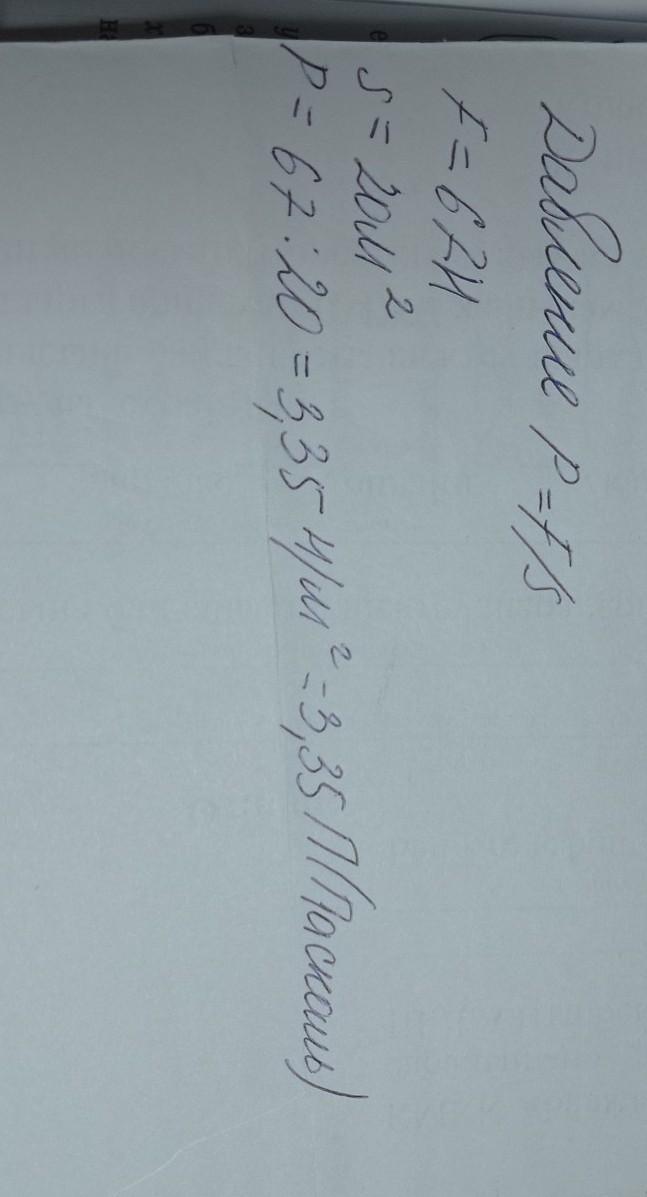 Давление P=F/S
F=67Н
S=20м²
P=67:20=3,35 Н/м²=3,35 П(Паскаль)